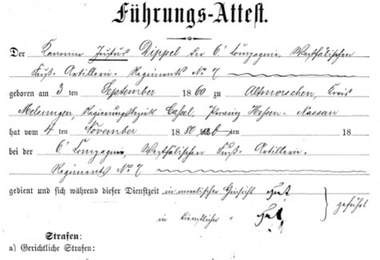 Führungs-Attest.
Der Kanonier Justus Dippel der 6ᵗ Compagnie Westfälischen
Fuß-Artillerie-Regiments No. 7
geboren am 3 ten September 1860 zu Altmorschen, Kreis
Melsungen, Regierungsbezirk Cassel, Provinz Hessen-Nassau
hat vom 4 ten November 1880 ten 18
bei der 6ᵗ Compagnie, Westfälischen Fuß-Artillerie-
Regiments No. 7
gedient und sich während dieser Dienstzeit in moralischer Hinsicht gut
in dienstlicher " gut geführt
Strafen:
a) Gerichtliche Strafen: